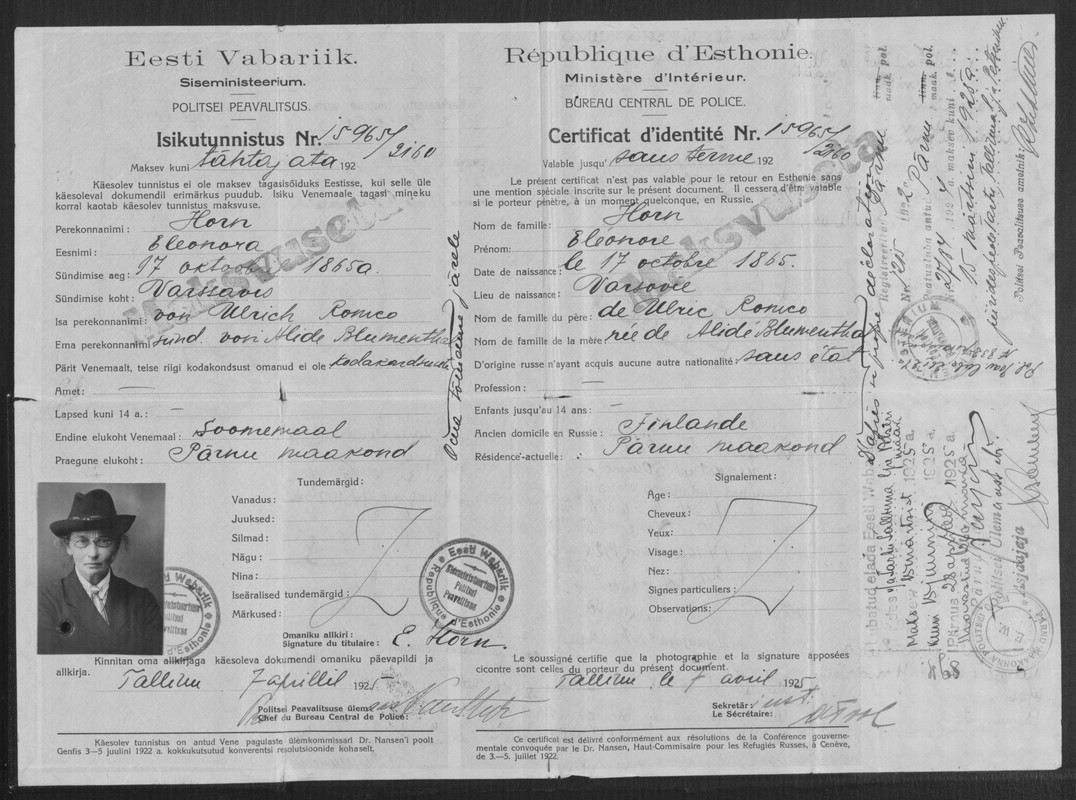 Eesti Vabariik.
Siseministeerium.
POLITSEI PEAVALITSUS.
Isikutunnistus Nr. 15965/2160
Maksev kuni tähtajata 192
Käesolev tunnistus ei ole maksev tagasisõiduks Eestisse, kui selle üle
käesoleval dokumendil erimärkus puudub. Isiku Venemaale tagasi mineku
korral kaotab käesolev tunnistus maksvuse.
Perekonnanimi: Horn
Eesnimi: Eleonora
Sündimise aeg: 17 oktoobr 1865a.
Sündimise koht: Varssavis
Isa perekonnanimi: von Ulrich Romco
Ema perekonnanimi sünd. von Alide Blumenthal
Pärit Venemaalt, teise riigi kodakondsust omanud ei ole kodakondsuseta
Amet: —
Lapsed kuni 14 a.: —
Endine elukoht Venemaal: Soomemaal
Praegune elukoht: Pärnu maakond
Maksvuseta
Oma tõendime järele
Tundemärgid:
Vanadus:
Juuksed:
Silmad:
Nägu:
Nina:
Iseäralised tundemärgid:
Märkused:
Eesti Vabariik
Siseministeerium
Politsei
Peavalitsus
Republique d'Esthonie
Omaniku allkiri:
Signature du titulaire: E. Horn.
Kinnitan oma allkirjaga käesoleva dokumendi omaniku päevapildi ja
allkirja.
Tallinn 7 aprillil 1925
Politsei Peavalitsuse ülem:
Chef du Bureau Central de Police:
Käesolev tunnistus on antud Vene pagulaste ülemkommissari Dr. Nansen'i poolt
Genfis 3—5 juulini 1922 a. kokkukutsutud konverentsi resolutsioonide kohaselt.
République d'Esthonie.
Ministère d'Intérieur.
BUREAU CENTRAL DE POLICE.
Certificat d'identité Nr. 15965/2160
Valable jusqu' sans terme 192
Le présent certificat n'est pas valable pour le retour en Esthonie sans
une mention spéciale inscrite sur le présent document. Il cessera d'être valable
si le porteur pénètre, à un moment quelconque, en Russie.
Nom de famille: Horn
Prénom: Eléonore
Date de naissance: le 17 octobre 1865.
Lieu de naissance: Varsovie
Nom de famille du père: de Ulric Romco
Nom de famille de la mère: née de Alidé Blumentha
D'origine russe n'ayant acquis aucune autre nationalité: sans état
Profession: —
Enfants jusqu'au 14 ans: —
Ancien domicile en Russie: Finlande
Résidence actuelle: Pärnu maakond
Maksvuseta
Signalement:
Age:
Cheveux:
Yeux:
Visage:
Nez:
Signes particuliers:
Observations:
Le soussigné certifie que la photographie et la signature apposées
cicontre sont celles du porteur du présent document.
Tallinn, le 7 avril 1925
Sekretär:
Le Sécrétaire:
Ce certificat est délivré conformément aux résolutions de la Conférence gouverne-
mentale convoquée par le Dr. Nansen, Haut-Commisaire pour les Refugiés Russes, à Genève,
de 3.—5. juillet 1922.
propre déclaration
maak. pol.
Pärnu
maksev kuni
15 märtsini 1926a.
Politsei Peavalitsuse ametnik:
1925 a.
1925 a.
Pärnus
1925 a.
Politsei Ülema
Asjaajaja